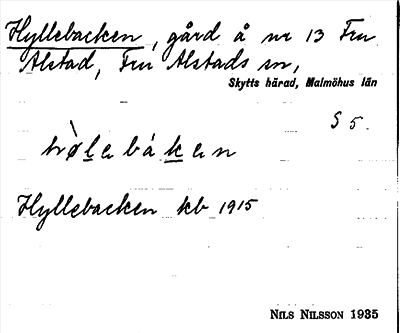 Hyllebacken, gård å nr 13 Fru
Alstad, Fru Alstads sn,
Skytts härad, Malmöhus län
S 5.
Hyllebacken kb 1915
NILS NILSSON 1935